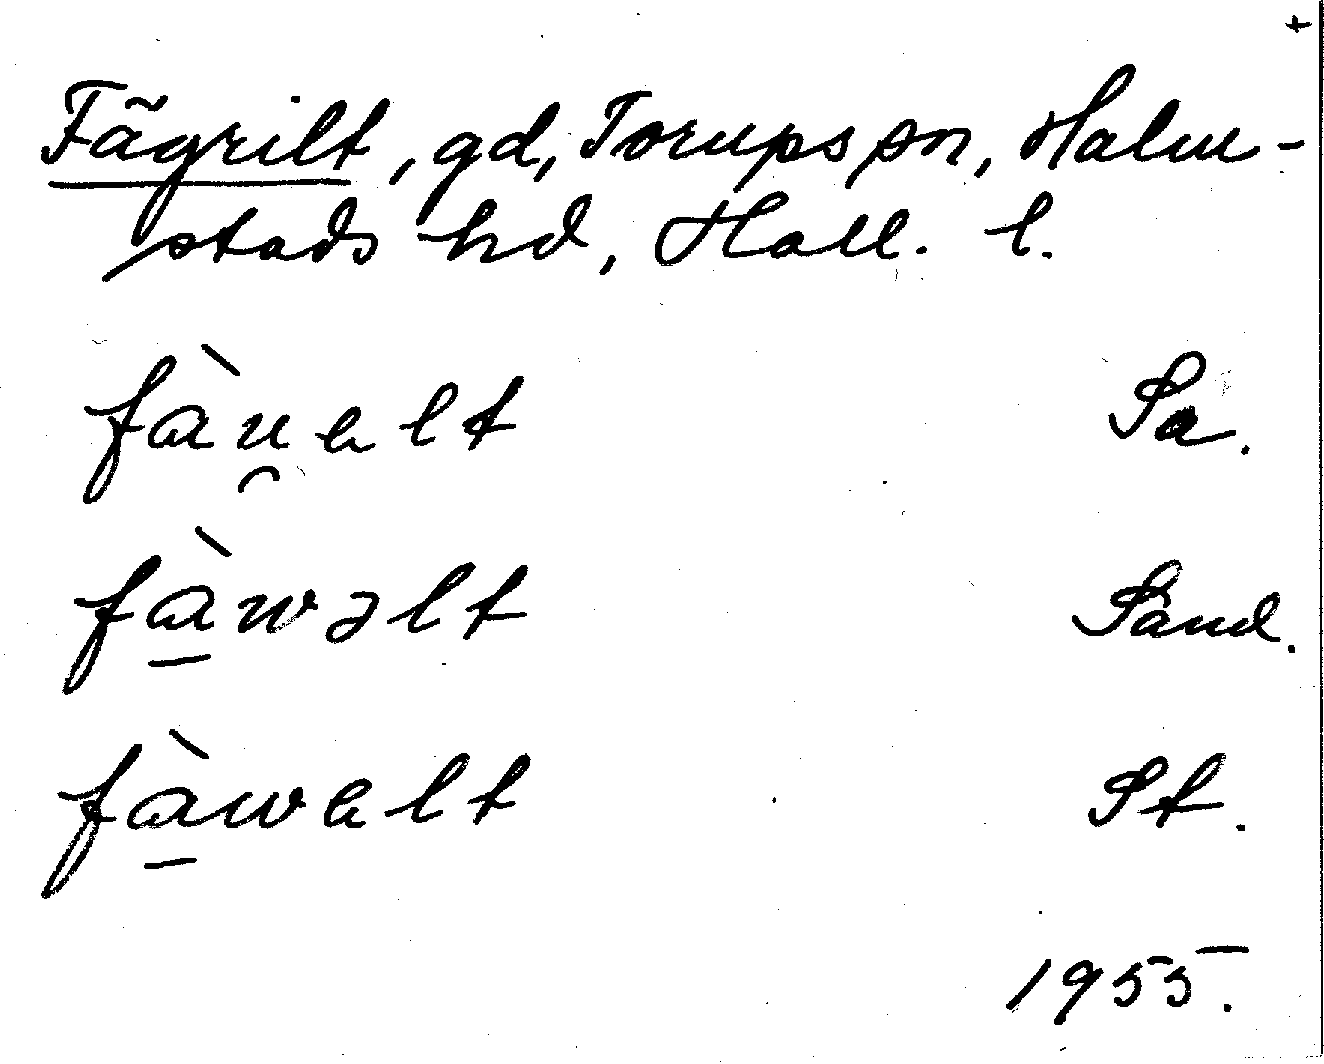 Fägrilt, gd, Torups sn, Halm-
stads hd, Hall. l.
fàu̯alt Sa.
fà̱wəlt Sand.
fà̱walt St.
1955.